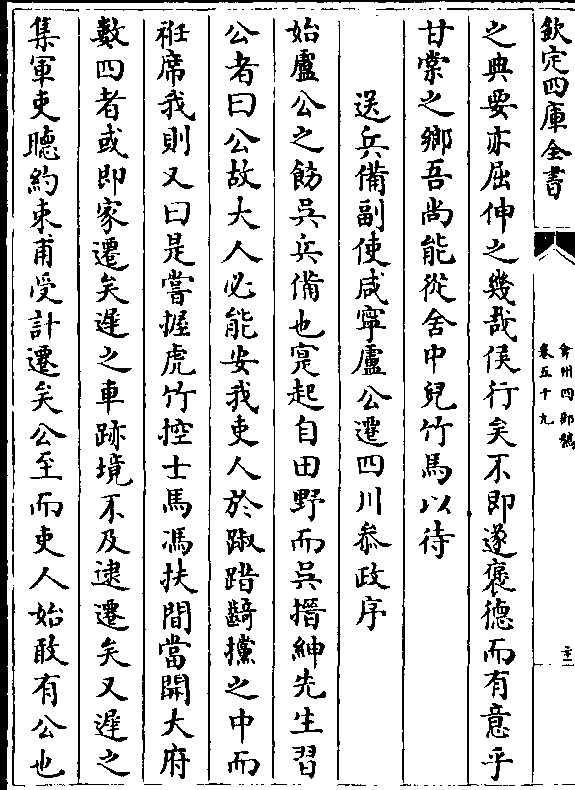 欽定四庫全書
弇州四部稿
卷五十九
之典要亦屈伸之幾哉侯行矣不即遂褒德而有意乎
甘棠之鄉吾尚能從舍中兒竹馬以待
送兵備副使咸寧盧公遷四川叅政序
始盧公之飭吳兵備也寔起自田野而吳搢紳先生習
公者曰公故大人必能安我吏人於踧踖齮攩之中而
袵席我則又曰是嘗握虎竹控士馬馮扶間當開大府
數四者或即家遷矣遲之車跡境不及逮遷矣又遲之
集軍吏聽約束甫受計遷矣公至而吏人始敢有公也